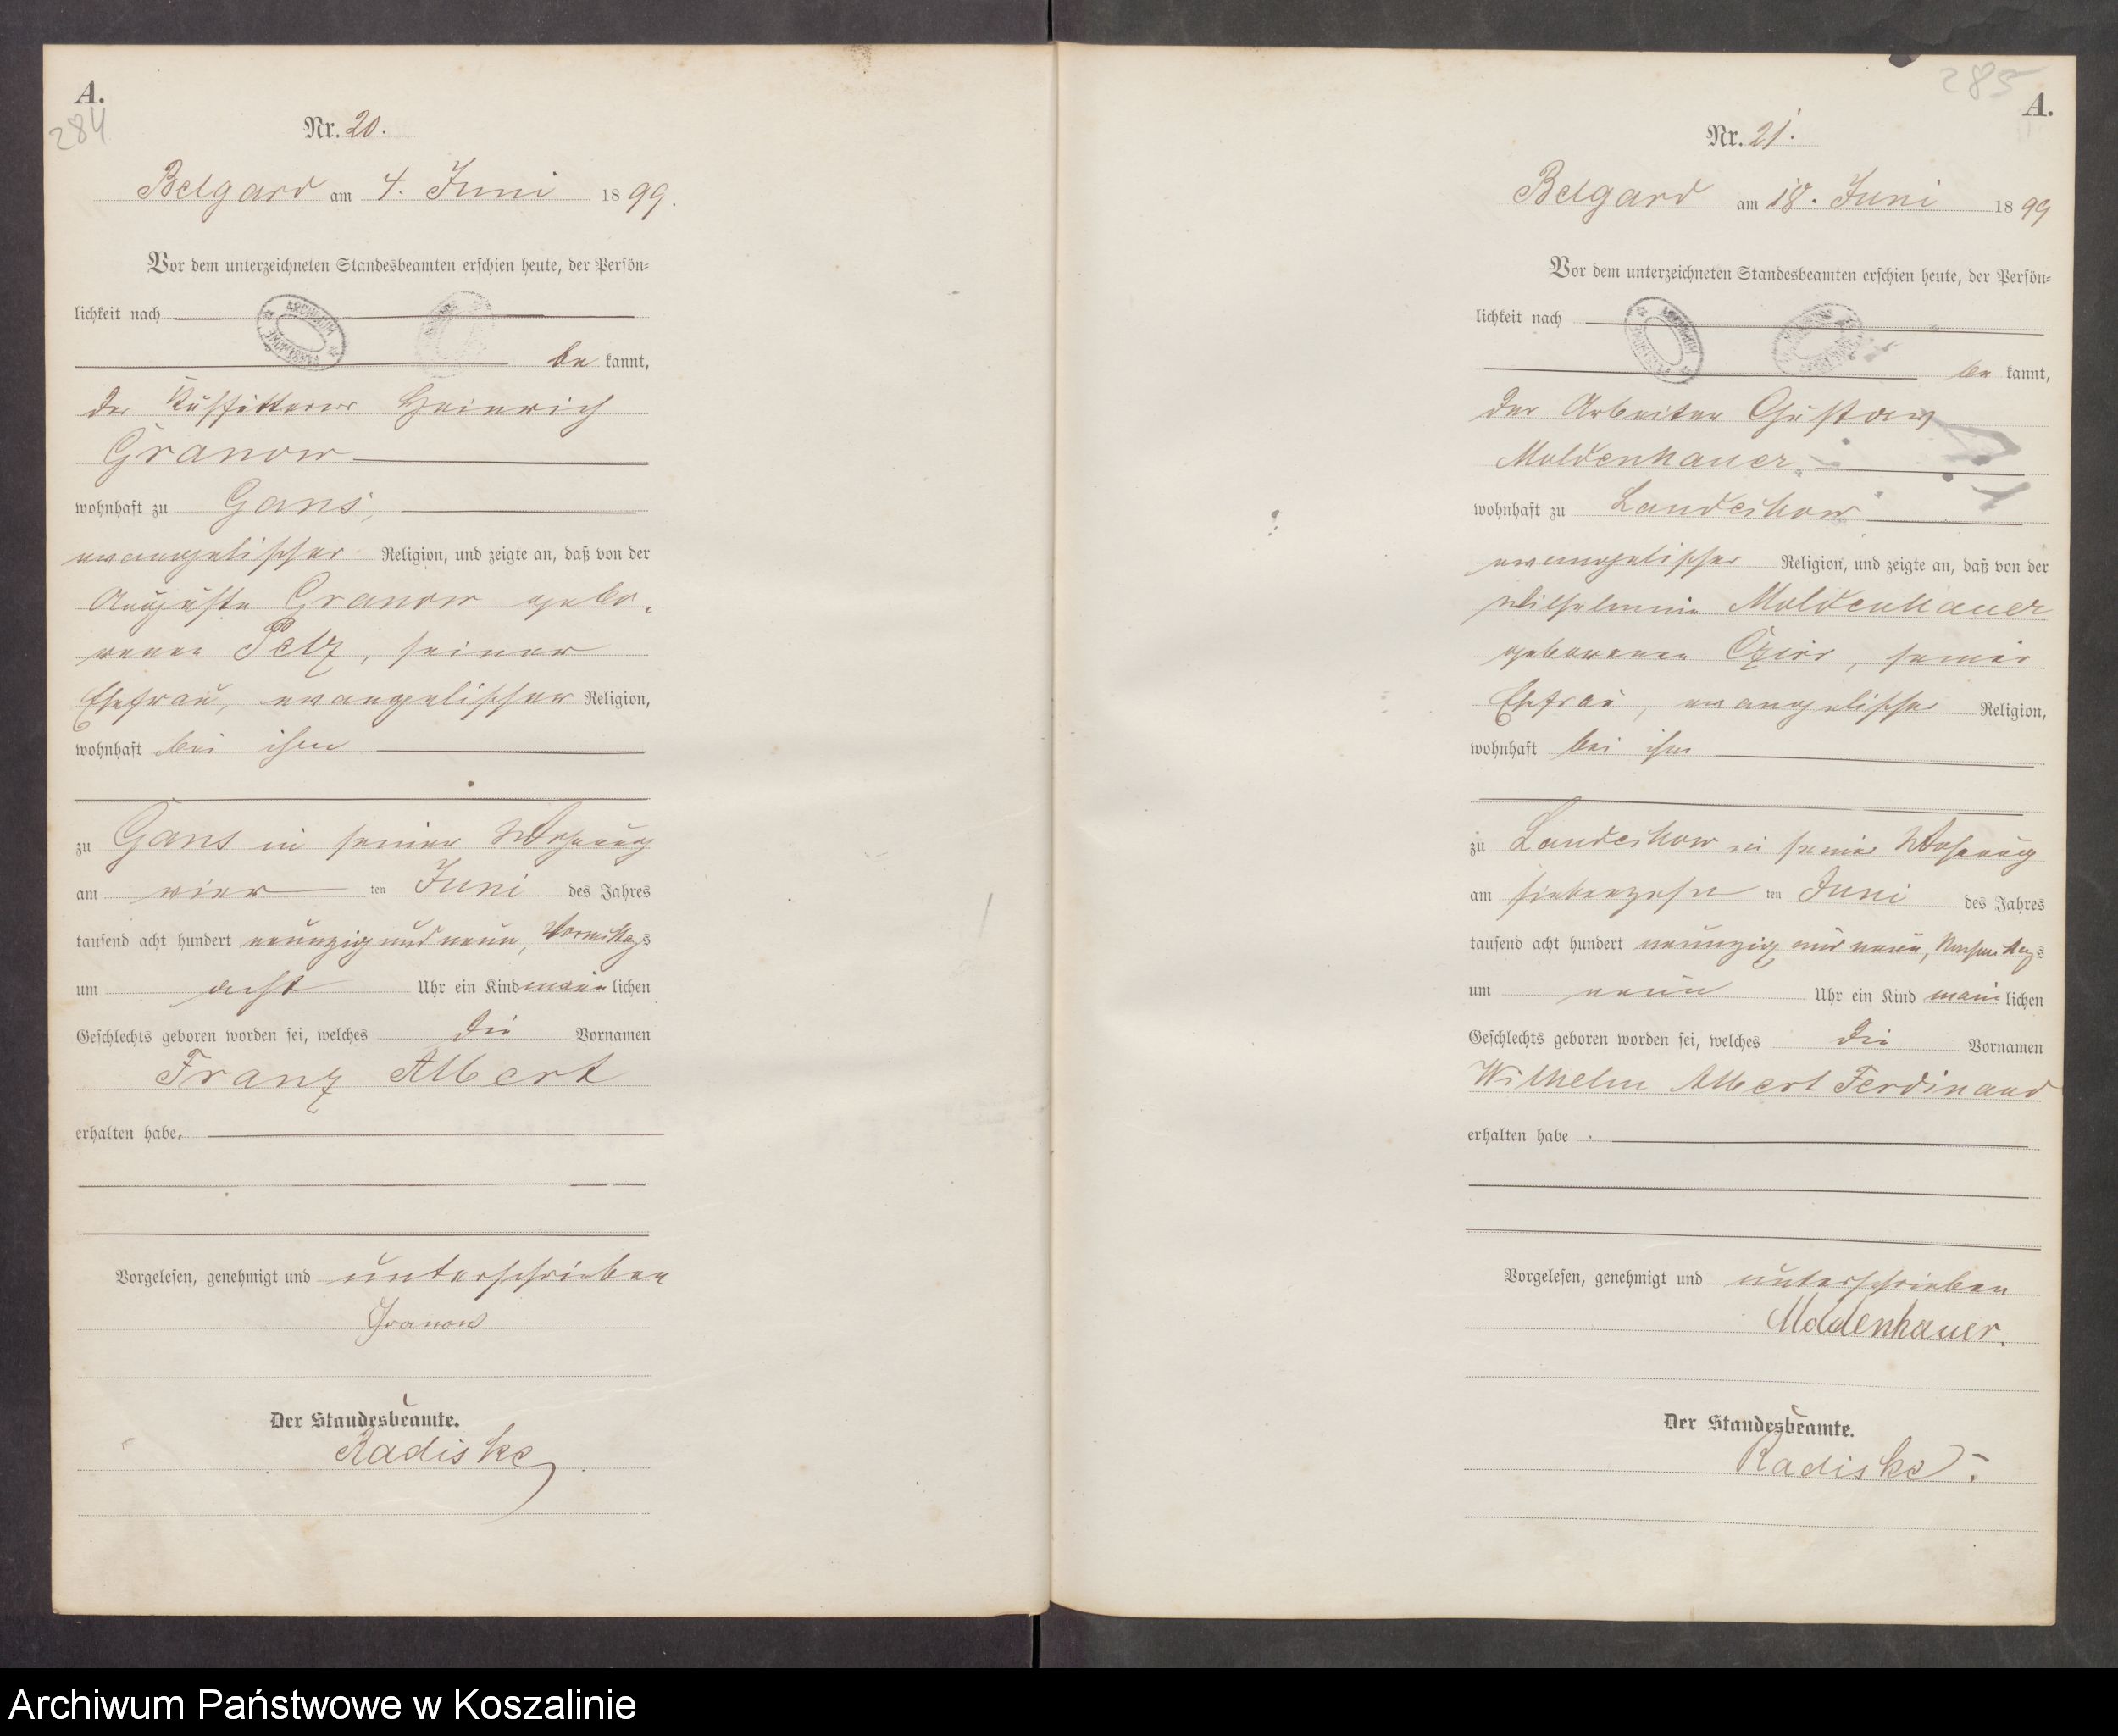 A.
284
Nr. 20.
Belgard am 4. Juni 1899.
Vor dem unterzeichneten Standesbeamten erschien heute, der Persön-
lichkeit nach
be kannt,
der Kuhfütterer Heinrich
Granow
wohnhaft zu Gans,
evangelischer Religion, und zeigte an, daß von der
Auguste Granow gebo-
renen Pelz, seiner
Ehefrau, evangelischer Religion,
wohnhaft bei ihm
zu Gans in seiner Wohnung
am vier ten Juni des Jahres
tausend acht hundert neunzig und neun, Vormittags
um acht Uhr ein Kind männlichen
Geschlechts geboren worden sei, welches die Vornamen
Franz Albert
erhalten habe.
Vorgelesen, genehmigt und unterschrieben
Granow
Der Standesbeamte.
Radiske
285
A.
Nr. 21.
Belgard am 18. Juni 1899
Vor dem unterzeichneten Standesbeamten erschien heute, der Persön-
lichkeit nach
be kannt,
der Arbeiter Gustav
Moldenhauer
wohnhaft zu Landechow
evangelischer Religion, und zeigte an, daß von der
Wilhelmine Moldenhauer
geborenen, seiner
Ehefrau, evangelischer Religion,
wohnhaft bei ihm
zu Landechow in seiner Wohnung
am siebenzehn ten Juni des Jahres
tausend acht hundert neunzig und neun, Nachmittags
um neun Uhr ein Kind männlichen
Geschlechts geboren worden sei, welches die Vornamen
Wilhelm Albert Ferdinand
erhalten habe.
Vorgelesen, genehmigt und unterschrieben
Moldenhauer.
Der Standesbeamte.
Radiske.
Archiwum Państwowe w Koszalinie